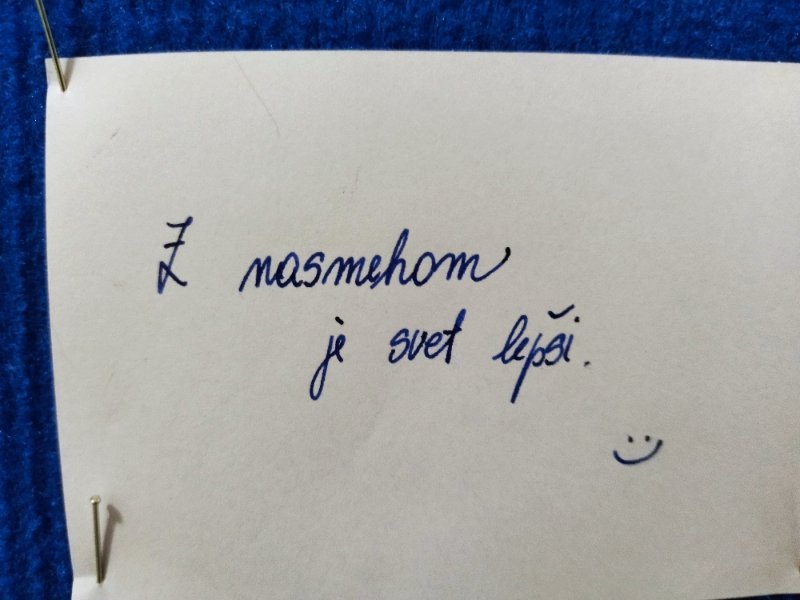 Z nasmehom
je svet lepši.